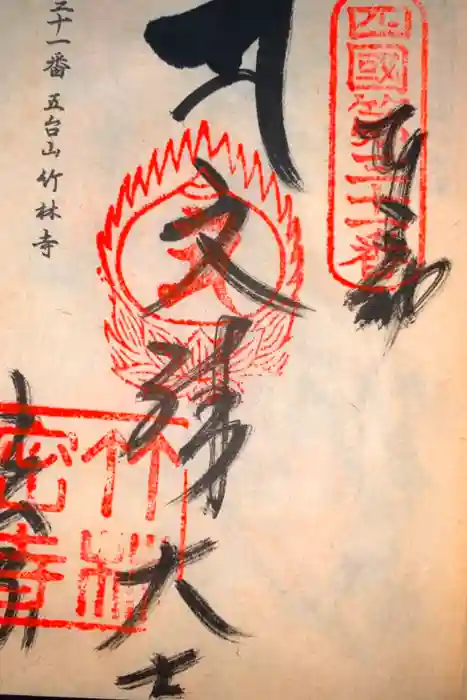 四國第三十一番
文殊大士
竹林
密寺
三十一番 五台山 竹林寺